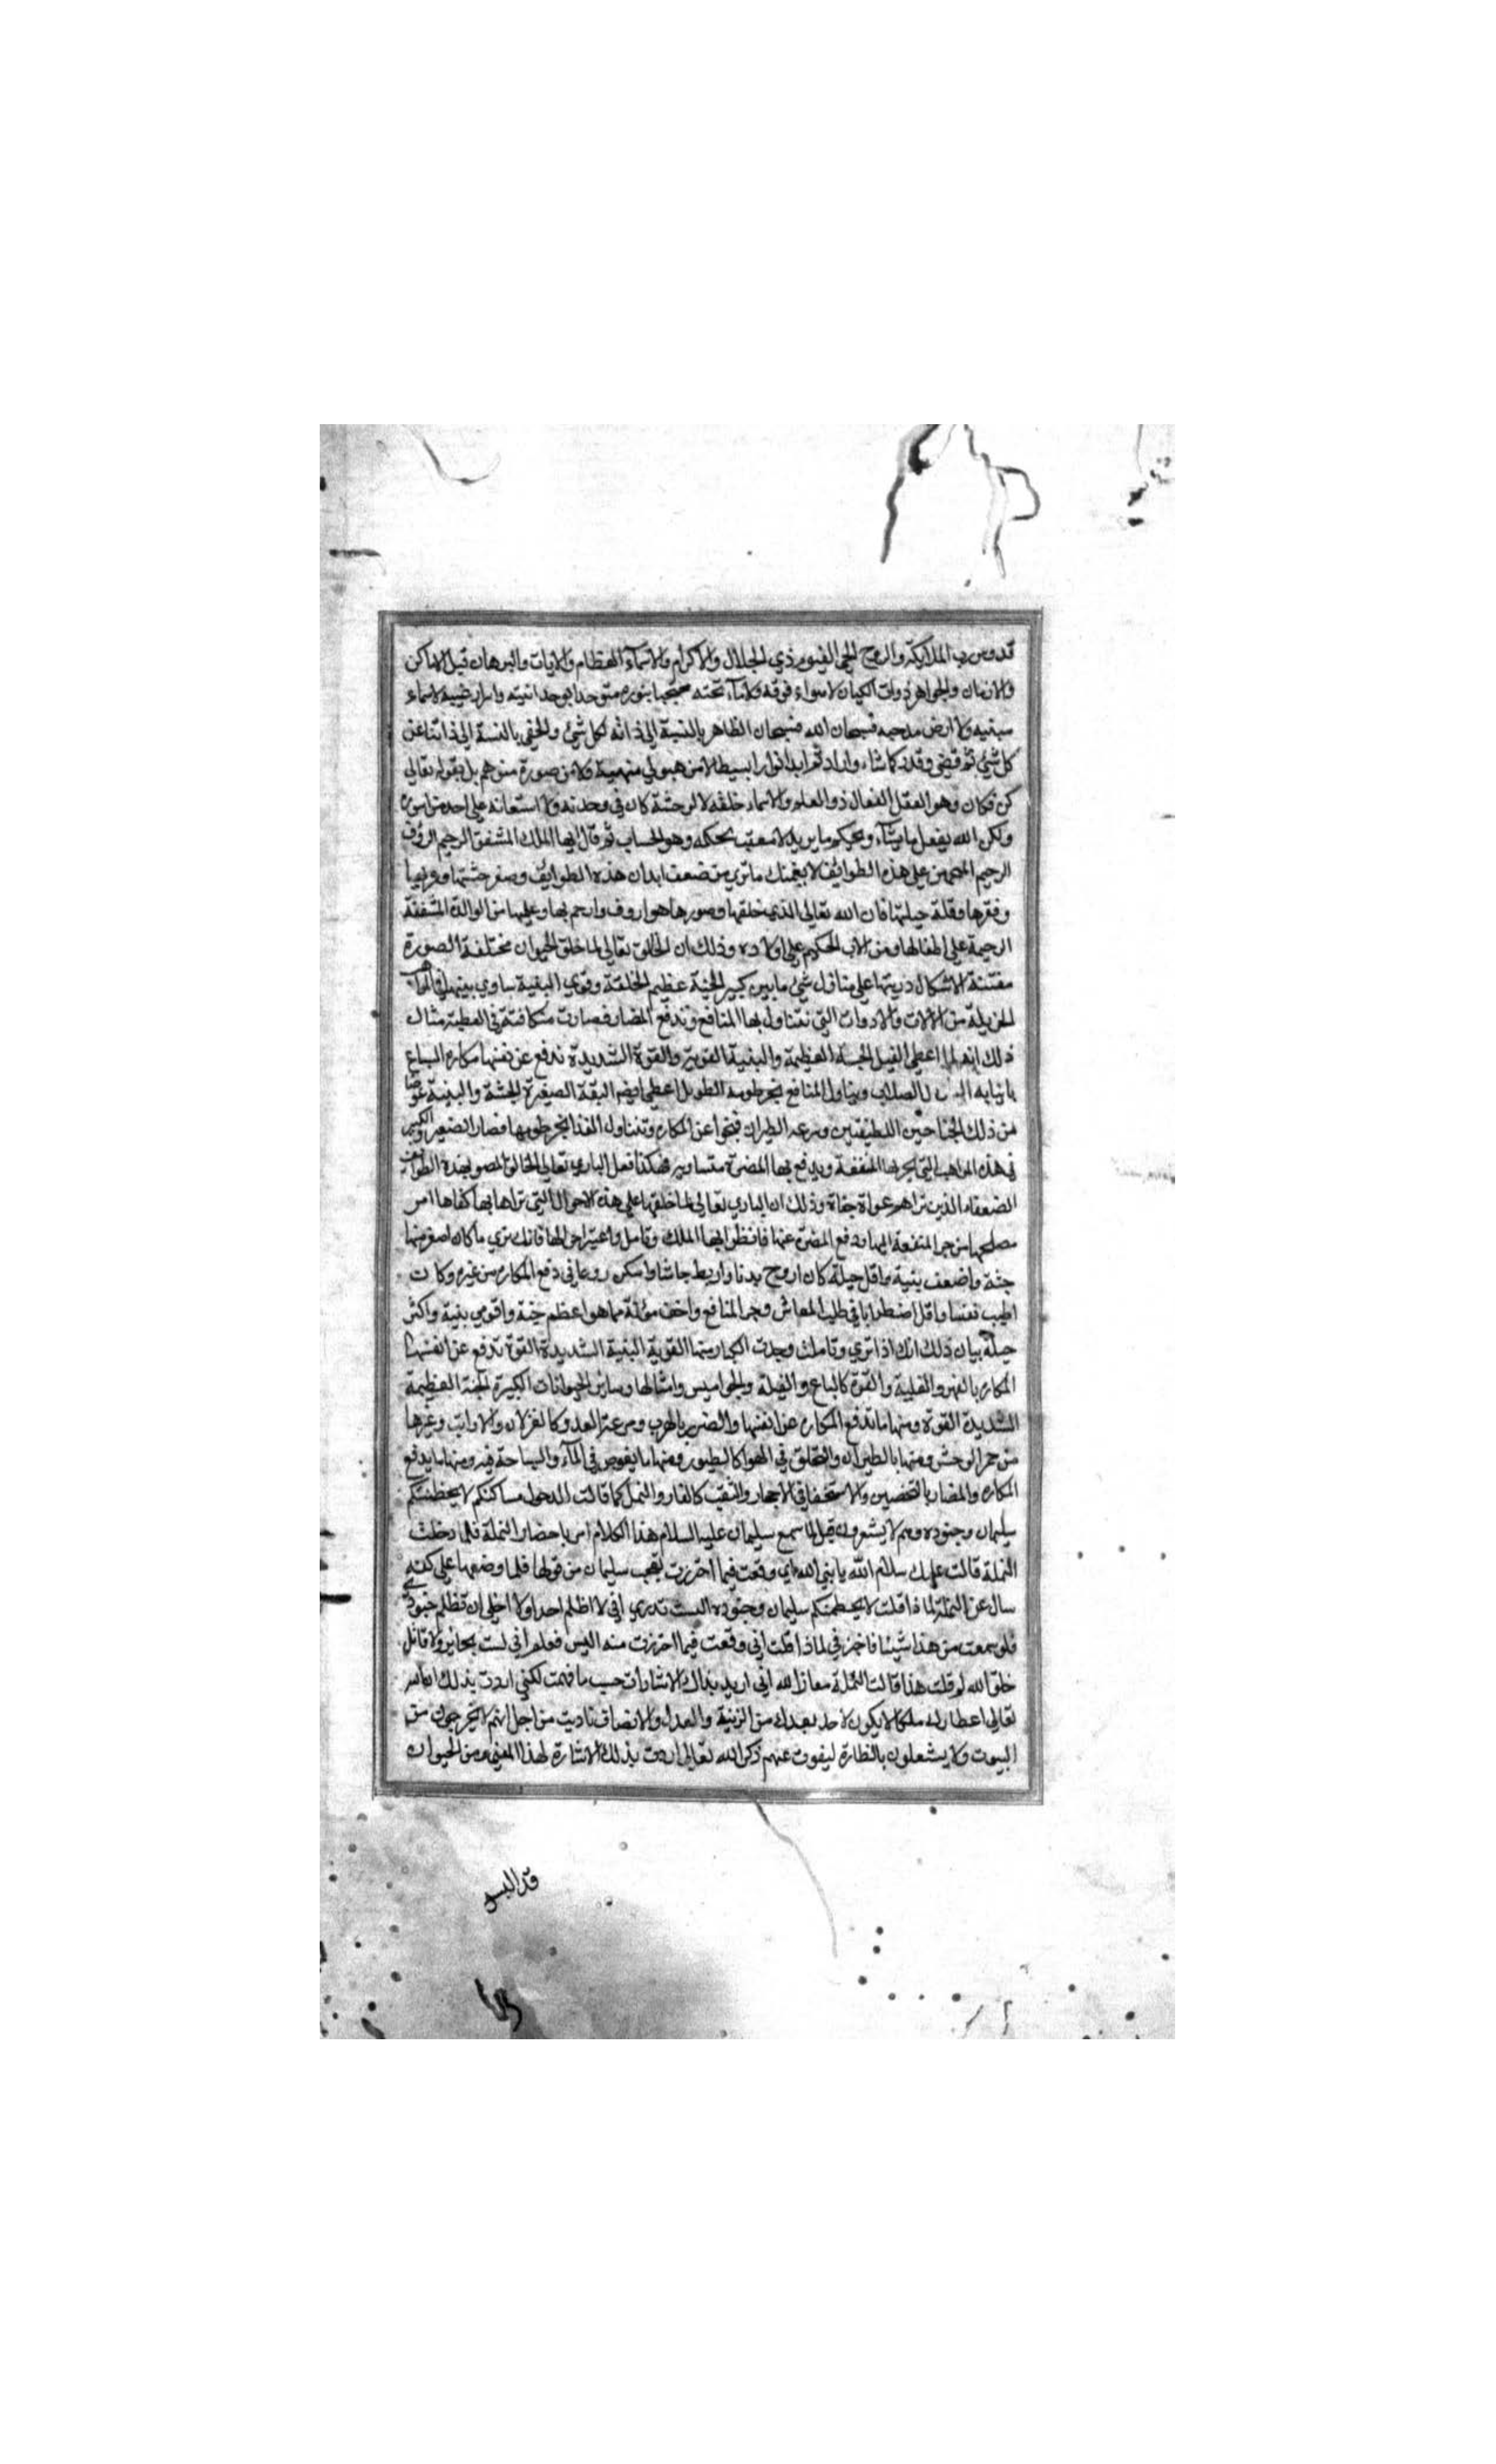 قدوس رب الملايكة والروح الحي القيوم ذي الجلال والاكرام والاسماء العظام والايات والبرهان قبل الاماكن
والازمان والجواهر ذوات الكيان لا سواء فوقه ولا ماء تحته محتجبا بنوره متوحدا بوحدانيته لا سماء
مبنيه ولا ارض مدحيه فسبحان الله فسبحان الظاهر بالنسبة الى ذاته لكل شئ والخفي بالنسبة الى ذاتنا عن
كل شئ ثم قضى وقدر كما شاء واراد ثم ابدا نورا بسيطا لا من هيولي ولا من صورة متوهم بل بقوله تعالى
كن فكان وهو العقل الفعال ذو العلم والاسماء خلقه لا لوحشة كان في وحدته ولا استعانه على احد من
ولكن الله يفعل ما يشآء ويحكم ما يريد لا معقب لحكمه وهو الحساب ثم قال ايها الملك المشفق الرحيم الرؤف
الرحيم على هذه الطوائف لا يغمنك ما ترى من ضعف ابدان هذه الطوايف وصغر جثتها
وفقرها وقلة حيلتها فان الله تعالى الذي خلقها وصورها هو اروف وارحم بها وعليها من الوالدة المشفقة
الرحيمة على اطفالها ومن الاب الحكيم على اولاده وذلك ان الخالق تعالى لما خلق الحيوان مختلفة الصورة
مفتنة الاشكال على منازل شئ ما بين كبير الجثة عظيم الخلقة وقوي البنية ساوي بينهم
الجزيلة من الالات والادوات التي تتناول بها المنافع وتدفع المضار فصارت متكافئة في العطية مثال
ذلك انه لما اعطى الفيل الجثة العظيمة والبنية القوية والقوة الشديدة تدفع عن نفسها مكاره السباع
بانيابه الصلاب ويتناول المنافع بخرطومه الطويل اعطى ايضا البقة الصغيرة الجثة والبنية عوضا
من ذلك الجناحين اللطيفتين وسرعة الطيران فتنجو عن المكاره وتتناول الغذا بخرطومها فصار الصغير والكبير
في هذه المواهب التي يجر بها المنفعة ويدفع بها المضرة متساويه فهكذا فعل الباري تعالى الخالق المصور بهذه الطوايف
الضعفاء الذين تراهم عراة حفاة وذلك ان الباري تعالى لما خلقها على هذه الاحوال التي تراها بها كفاها امر
مصلحها من جر المنفعة اليها ودفع المضرة عنها فانظر ايها الملك وتامل واعتبر احوالها فانك ترى ما كان اصغر منها
جثة واضعف بنية واقل حيلة كان اروح بدنا واربط جاشا واسكن روعا في دفع المكاره من غيره وكان
اطيب نفسا واقل اضطرابا في طلب المعاش وجر المنافع واخف مؤنة مما هو اعظم جثة واقوي بنية واكثر
حيلة بيان ذلك انك اذا ترى وتاملت وجدت الكبار منها القوية البنية الشديدة القوة تدفع عن انفسها
المكاره بالقهر والغلبة والقوة كالسباع والفيلة والجواميس وامثالها وساير الحيوانات الكبيرة الجثة العظيمة
الشديدة القوة ومنها ما تدفع المكاره عن انفسها والضرر بالهرب وسرعة العدو كالغزلان والارانب وغيرها
من حمر الوحش ومنها بالطيران والتحلق في الهوا كالطيور ومنها ما يغوص في المآء والسباحة فيه ومنها ما يدفع
المكاره والمضار بالتحصين والاستخفا في الاجحار والثقب كالفار والنمل كما قالت ادخلوا مساكنكم لا يحطمنكم
سليمان وجنوده وهم لا يشعرون قيل لما سمع سليمان عليه السلام هذا الكلام امر باحضار النملة فلما دخلت
النملة قالت عليك سلام الله يا نبي الله اني وقعت فيما احترزت تعجب سليمان من قولها فلما وضعها على كفه
سال عن النملة لما ذا قلت لا يحطمنكم سليمان وجنوده الست تدري اني لا اظلم احدا ولا اخلي ان تظلم جنودي
فلو سمعت من هذا شيئا فاخبرني لماذا قلت اني وقعت فيما احترزت منه اليس فعلم اني لست بجاير ولا قاتل
خلق الله لم قلت هذا قالت النملة معاذ الله اني اريد بذاك الاشارات حسب ما فهمت لكني اردت بذلك ان الله
تعالى اعطا لك ملكا لا يكون لاحد بعدك من الزينة والعدل والانصاف ناديت من اجل انهم لا يخرجون من
البيوت ولا يشغلون بالنظارة ليفوت عنهم ذكر الله تعالى اردت بذلك الاشارة لهذا المعنى ومن الحيوان